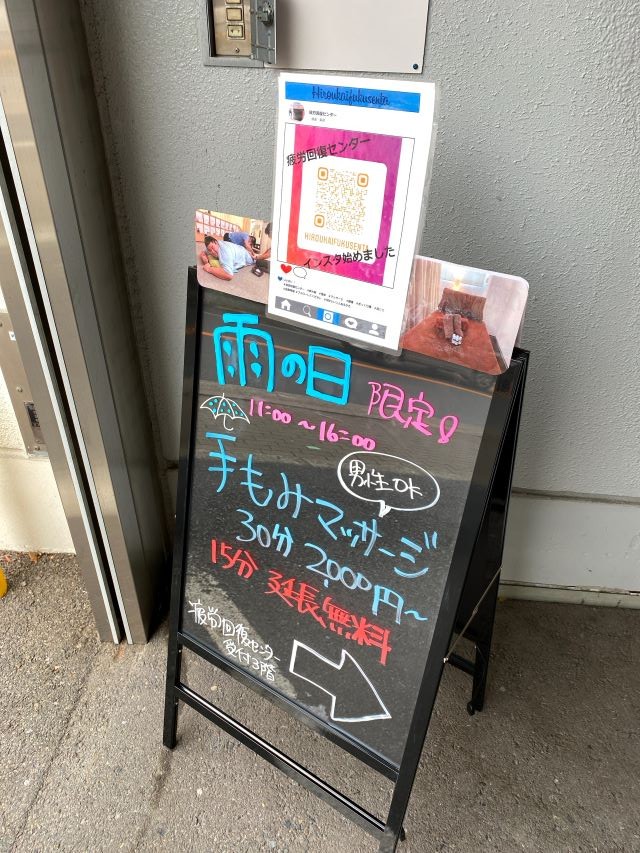 Hiroukaifukusenta
疲労回復センター
疲労回復センター
HIROUKAIFUKUSENTA
インスタ始めました
雨の日 限定!
11:00〜16:00
男性OK
手もみマッサージ
30分 2,000円〜
15分 延長無料
疲労回復センター
受付3階